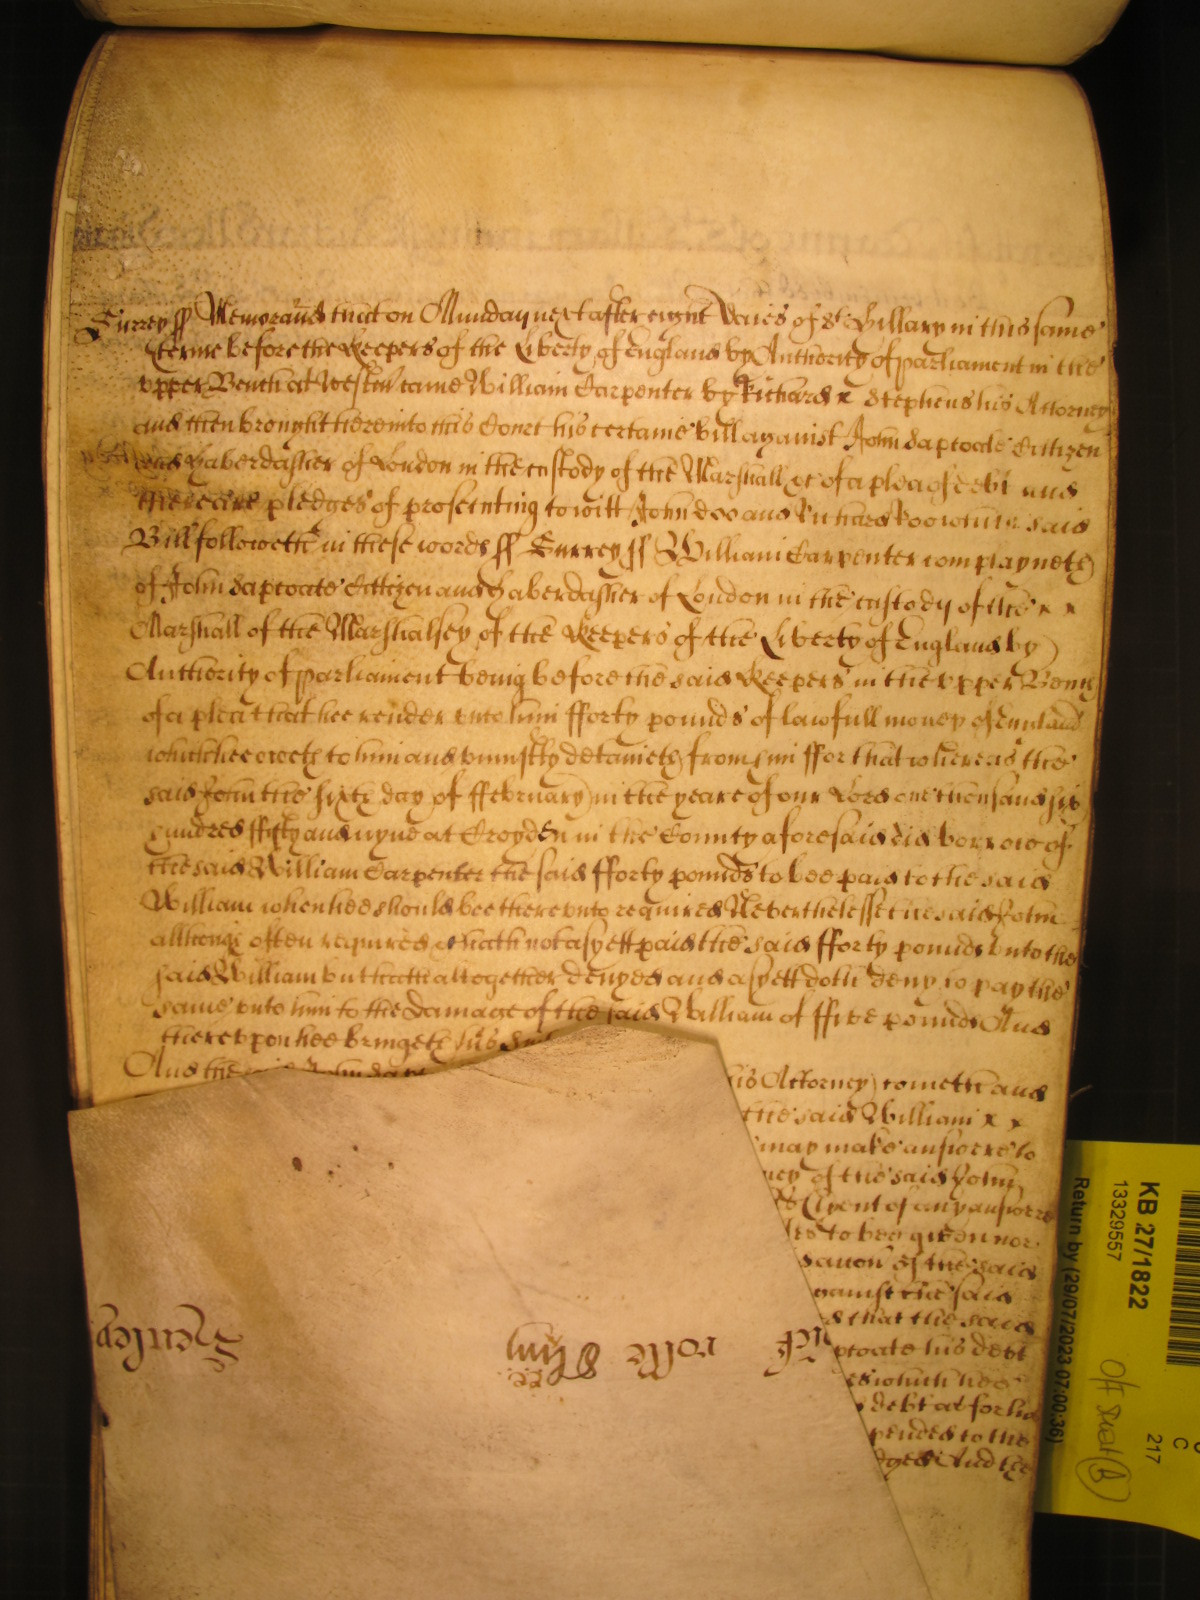 Surrey ss Memorand that on Munday next after eight daies of St Hillary in this same
terme before the Keepers of the Liberty of England by Authority of parliament in the
upper Bench at Westm came William Carpenter by Richard x Stephens his Attorney
and then brought here into this Court his certaine bill against John Sapcoate Cittizen
and haberdasher of London in the custody of the Marshall &c of a plea of debt and
there are pledges of prosecuting to witt John doo and Richard Roo which said
Bill followeth in these words ss Surrey ss William Carpenter complayneth
of John Sapcoate Cittizen and haberdasher of London in the custody of the x x
Marshall of the Marshalsey of the Keepers of the Liberty of England by
Authority of parliament being before the said Keepers in the upper Bench
of a plea that hee render unto him fforty pounds of lawfull money of England
which hee oweth to him and uniustly detaineth from him ffor that whereas the
said John the sixth day of ffebruary in the yeare of our Lord one thousand six
hundred ffifty and nyne at Croyden in the County aforesaid did borrow of
the said William Carpenter the said fforty pounds to bee paid to the said
William when hee should bee thereunto required Neverthelesse the said John
although often required hath not as yett paid the said fforty pounds unto the
said William but hath altogether denyed and as yett doth deny to pay the
same unto him to the damage of the said William of ffive pounds And
thereupon hee bringeth his
And the said John
his Attorney cometh and
the said William x x
may make answere to
of the said John
Clyent of any answere
to bee given nor
of the said
against the said
that the said
his debt
which hee
debt at
to the
And the
rolle
KB 27/1822
13329557
Return by (29/07/2023 07:00:36)
217
C